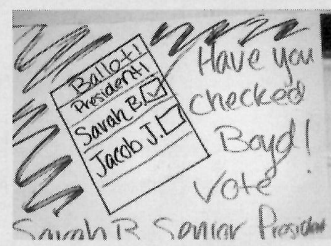 Ballot!
President!
Sarah B.
Jacob J.
Have you
checked
Boyd!
Vote
Sarah B Senior President